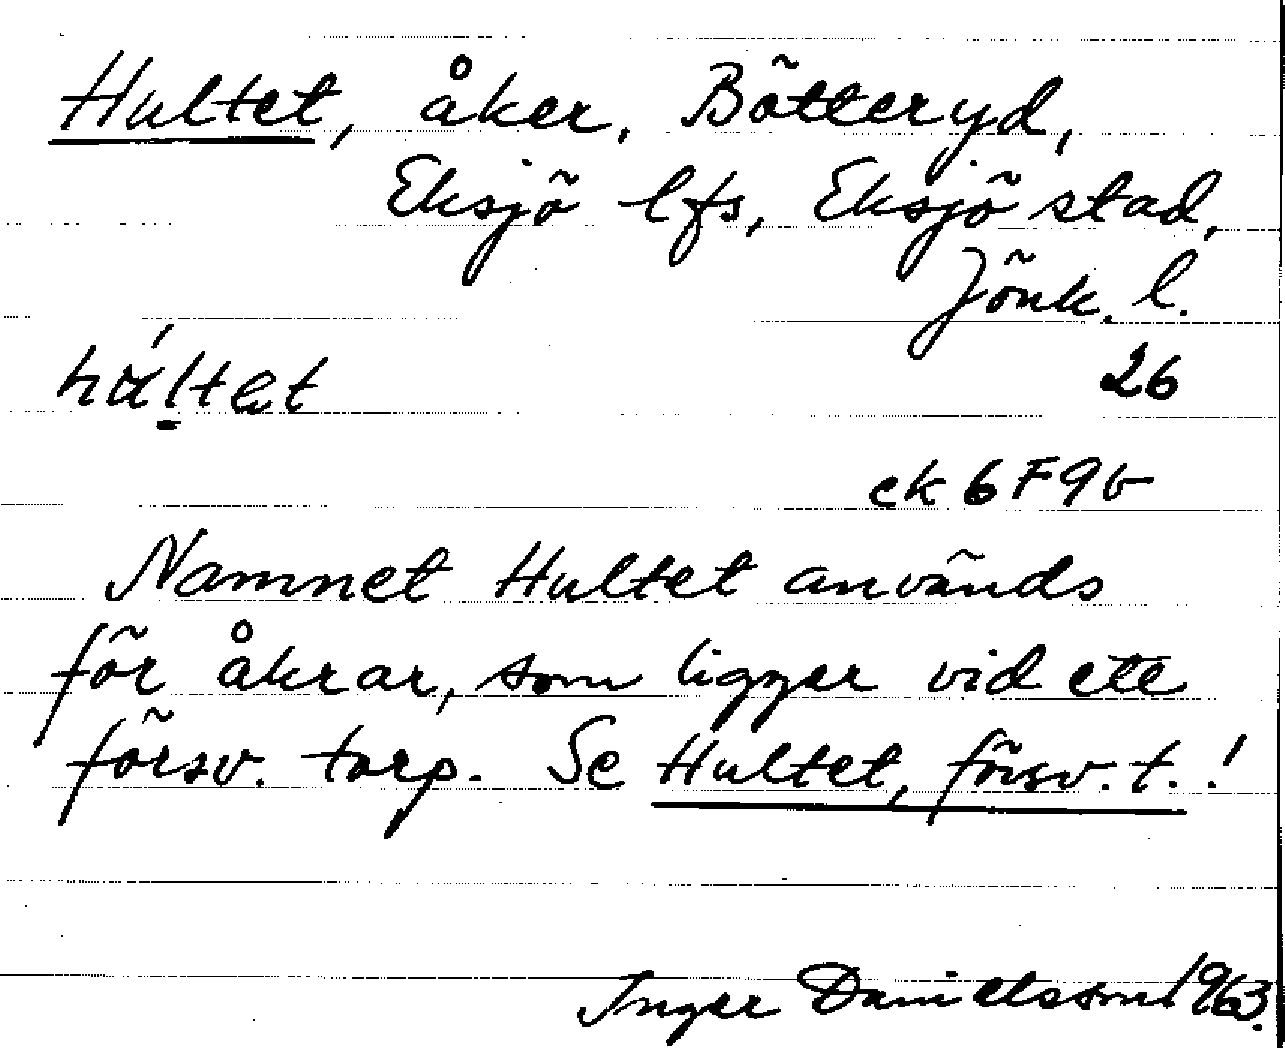 Hultet, åker. Bötteryd,
Eksjö lfs, Eksjö stad,
Jönk. l.
26
ek 6F9b
Namnet Hultet används
för åkrar, som ligger vid ett
försv. torp. Se Hultet, försv. t.!
Inger Danielsson 1963.